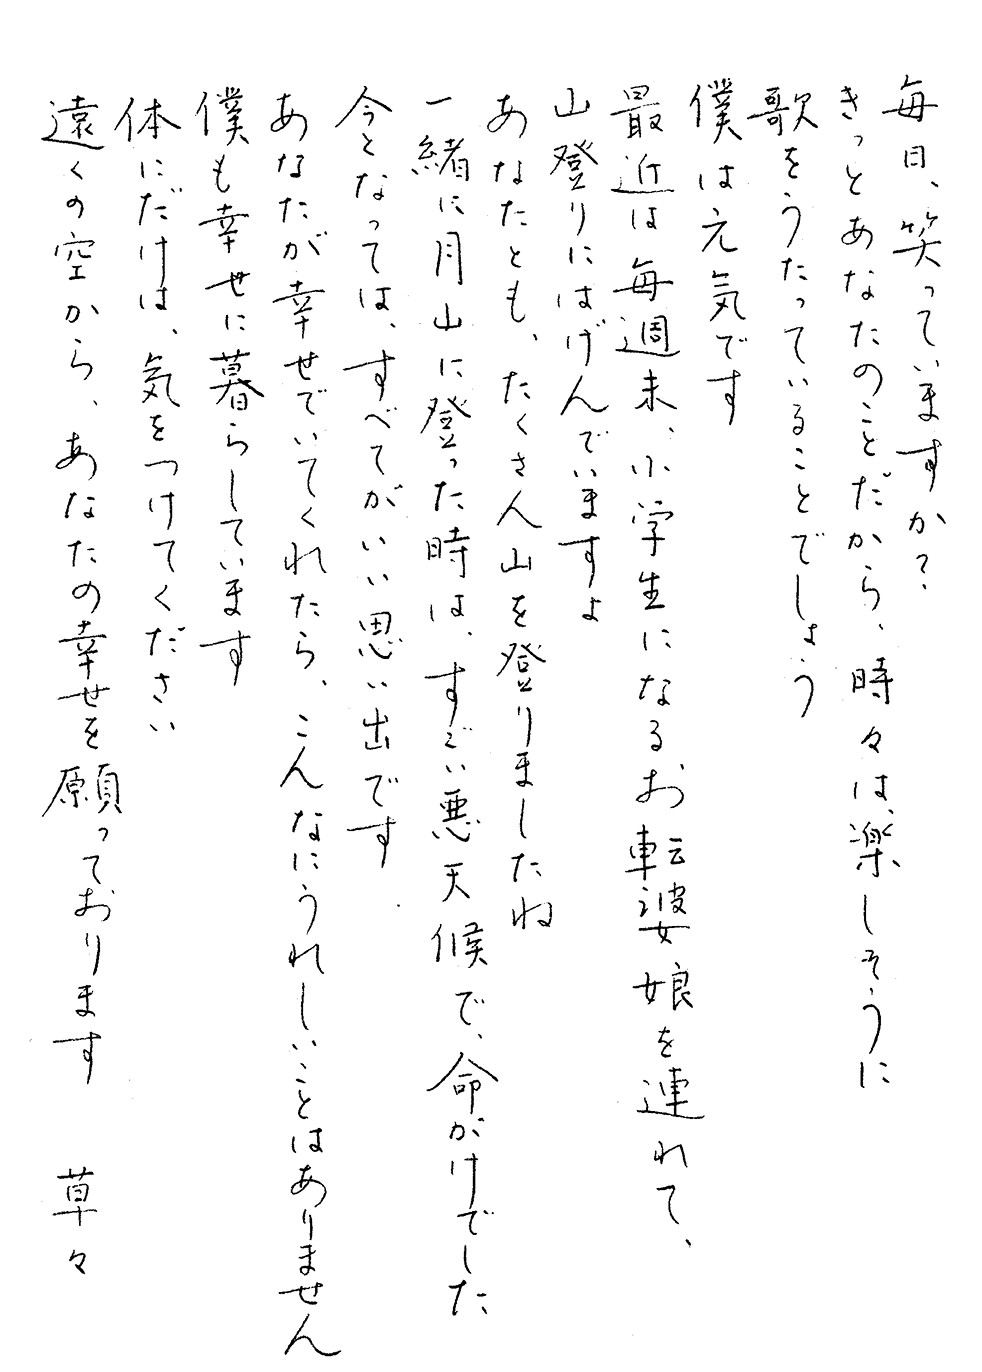 毎日、笑っていますか？
きっとあなたのことだから、時々は、楽しそうに
歌をうたっていることでしょう
僕は元気です
最近は毎週末、小学生になるお転婆娘を連れて、
山登りにはげんでいますよ
あなたとも、たくさん山を登りましたね
一緒に月山に登った時は、すごい悪天候で、命がけでした
今となっては、すべてがいい思い出です
あなたが幸せでいてくれたら、こんなにうれしいことはありません
僕も幸せに暮らしています
体にだけは、気をつけてください
遠くの空から、あなたの幸せを願っております 草々